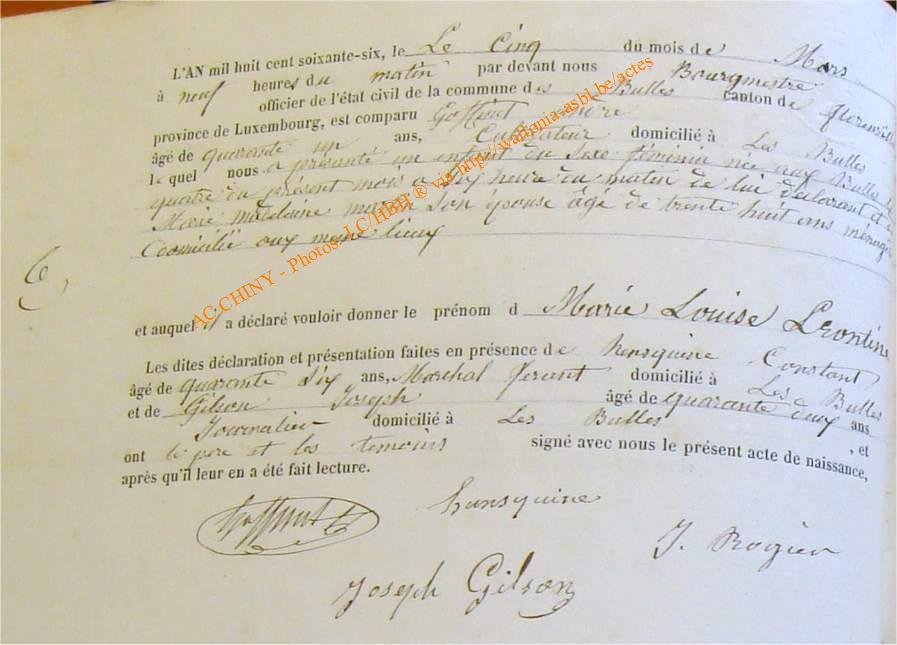 L'AN mil huit cent soixante-six, le Le Cinq du mois de Mars
à neuf heures du matin par devant nous Bourgmestre
officier de l'état civil de la commune des Bulles canton de florenville
province de Luxembourg, est comparu Goffinet
âgé de quarante un ans, Cultivateur domicilié à Les Bulles
lequel nous a présenté un enfant du sexe féminin née aux Bulles le
quatre du présent mois a six heure du matin de lui déclarant et de
Marie madelaine son epouse âgé de trente huit ans ménagère
Domicilié aux meme lieux
6)
et auquel il a déclaré vouloir donner le prénom d Marie Louise Leontine
Les dites déclaration et présentation faites en présence de hensquine Constant
âgé de quarante six ans, Marechal ferant domicilié à Les Bulles
et de Gilson Joseph âgé de quarante deux ans
Journalier domicilié à Les Bulles , et
ont le pere et les temoins signé avec nous le présent acte de naissance,
après qu'il leur en a été fait lecture.
hansquine
J. Rogier
Joseph Gilson
AC CHINY - Photos: LC HBH ® via http://wallonia-asbl.be/actes